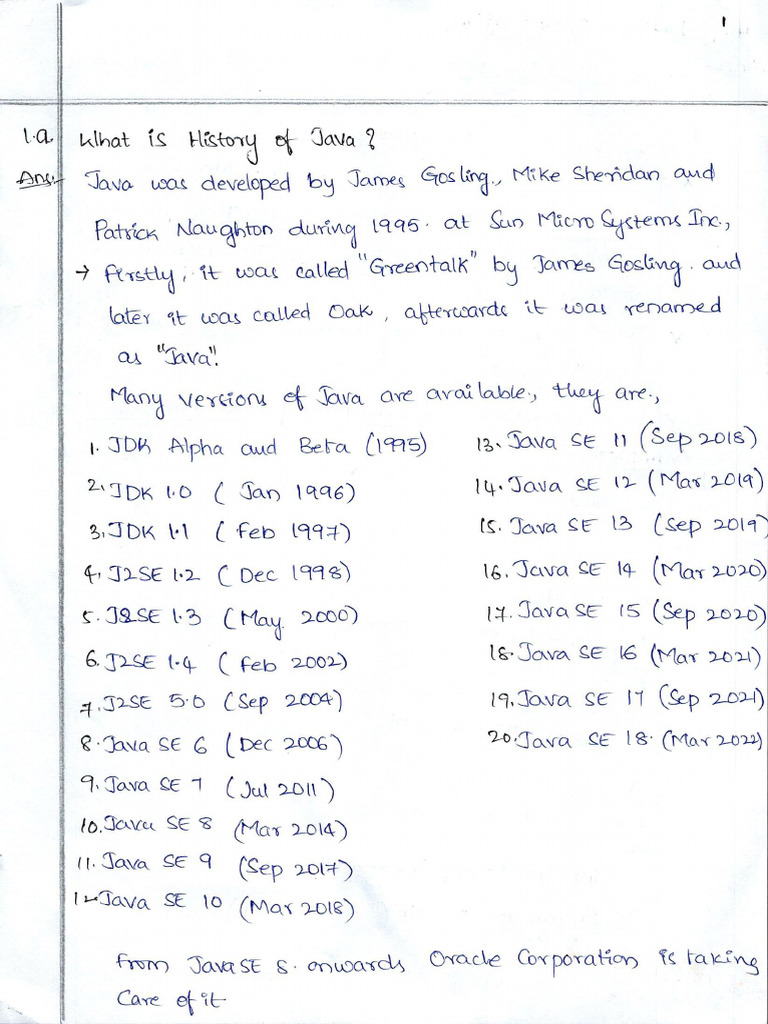 1
1.a. What is History of Java?
Ans:- Java was developed by James Gosling., Mike Sheridan and
Patrick Naughton during 1995. at Sun Micro Systems Inc.,
→ firstly, it was called "Greentalk" by James Gosling. and
later it was called Oak, afterwards it was renamed
as "Java".
Many versions of Java are available., they are.,
1. JDK Alpha and Beta (1995)
2. JDK 1.0 (Jan 1996)
3. JDK 1.1 (Feb 1997)
4. J2SE 1.2 (Dec 1998)
5. J2SE 1.3 (May. 2000)
6. J2SE 1.4 (Feb 2002)
7. J2SE 5.0 (Sep 2004)
8. Java SE 6 (Dec 2006)
9. Java SE 7 (Jul 2011)
10. Java SE 8 (Mar 2014)
11. Java SE 9 (Sep 2017)
12. Java SE 10 (Mar 2018)
13. Java SE 11 (Sep 2018)
14. Java SE 12 (Mar 2019)
15. Java SE 13 (Sep 2019)
16. Java SE 14 (Mar 2020)
17. Java SE 15 (Sep 2020)
18. Java SE 16 (Mar 2021)
19. Java SE 17 (Sep 2021)
20. Java SE 18. (Mar 2022)
From Java SE 8. onwards Oracle Corporation is taking
Care of it